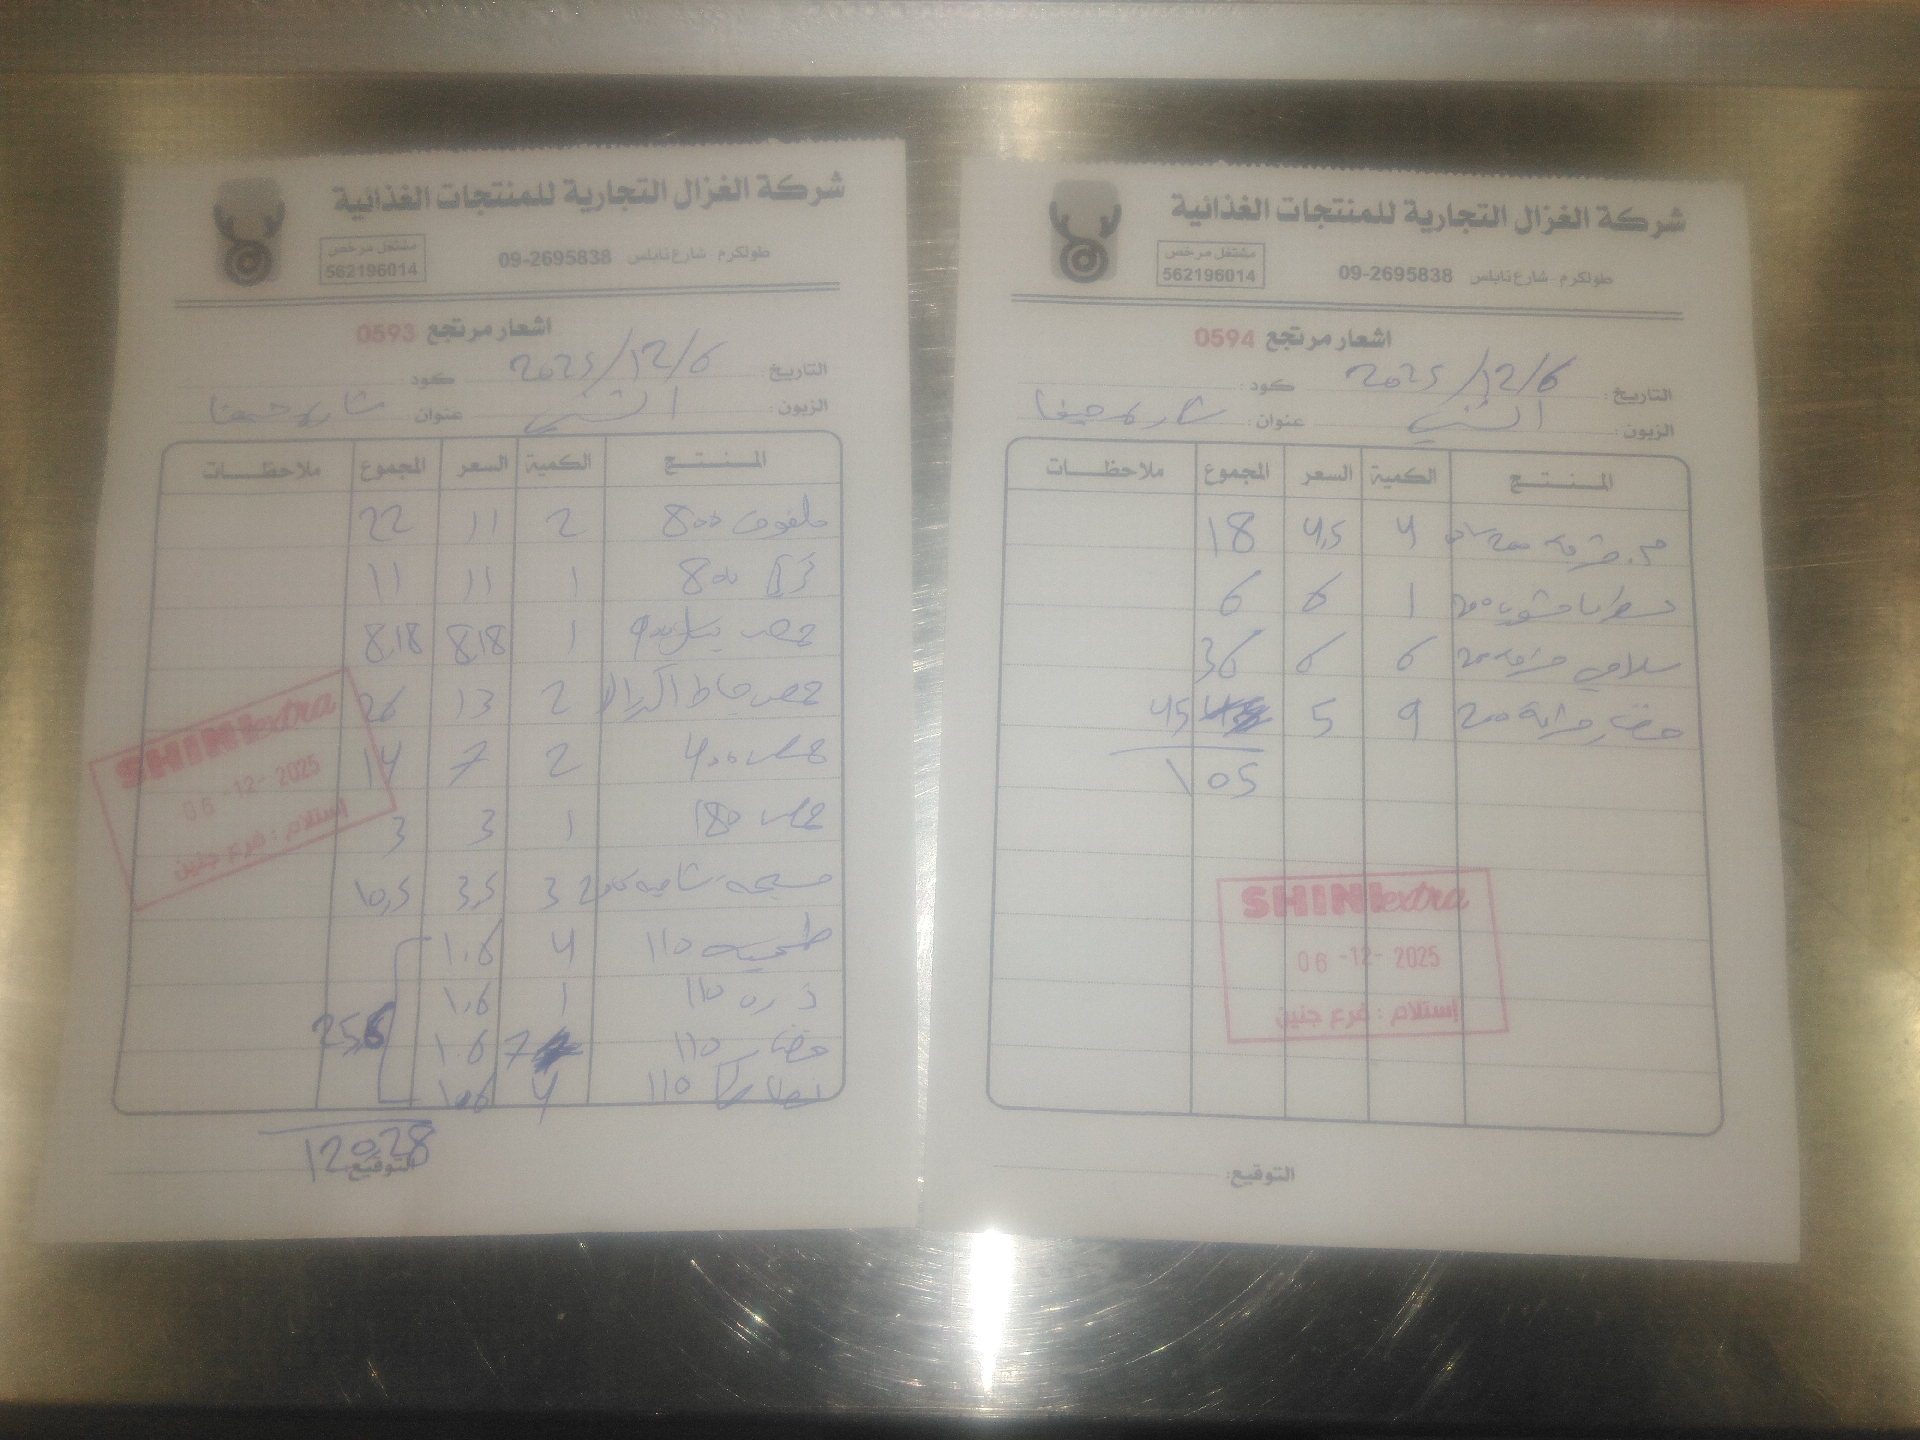 شركة الغزال التجارية للمنتجات الغذائية
مشتغل مرخص
562196014
طولكرم - شارع نابلس 09-2695838
اشعار مرتجع 0593
التاريخ: 2025/12/6 كود:
الزبون: الشني عنوان: شارع حيفا
المنتج الكمية السعر المجموع ملاحظات
ملفوف 800 2 11 22
800 1 11 11
حمص 900 1 8,18 8,18
حمص 2 13 26
حمص 400 2 7 14
حمص 180 1 3 3
مسبحه شاميه 3 3,5 10,5
طحينه 110 4 1.6
ذره 110 1 1.6
خضار 110 7 1.6
110 4 1.6
25,6
120,28
التوقيع:
SHINI extra
06 -12- 2025
إستلام : فرع جنين
شركة الغزال التجارية للمنتجات الغذائية
مشتغل مرخص
562196014
طولكرم - شارع نابلس 09-2695838
اشعار مرتجع 0594
التاريخ: 2025/12/6 كود:
الزبون: الشني عنوان: شارع حيفا
المنتج الكمية السعر المجموع ملاحظات
200 4 4,5 18
200 1 6 6
سلامي 200 6 6 36
200 9 5 45
105
SHINI extra
06 -12- 2025
إستلام : فرع جنين
التوقيع: